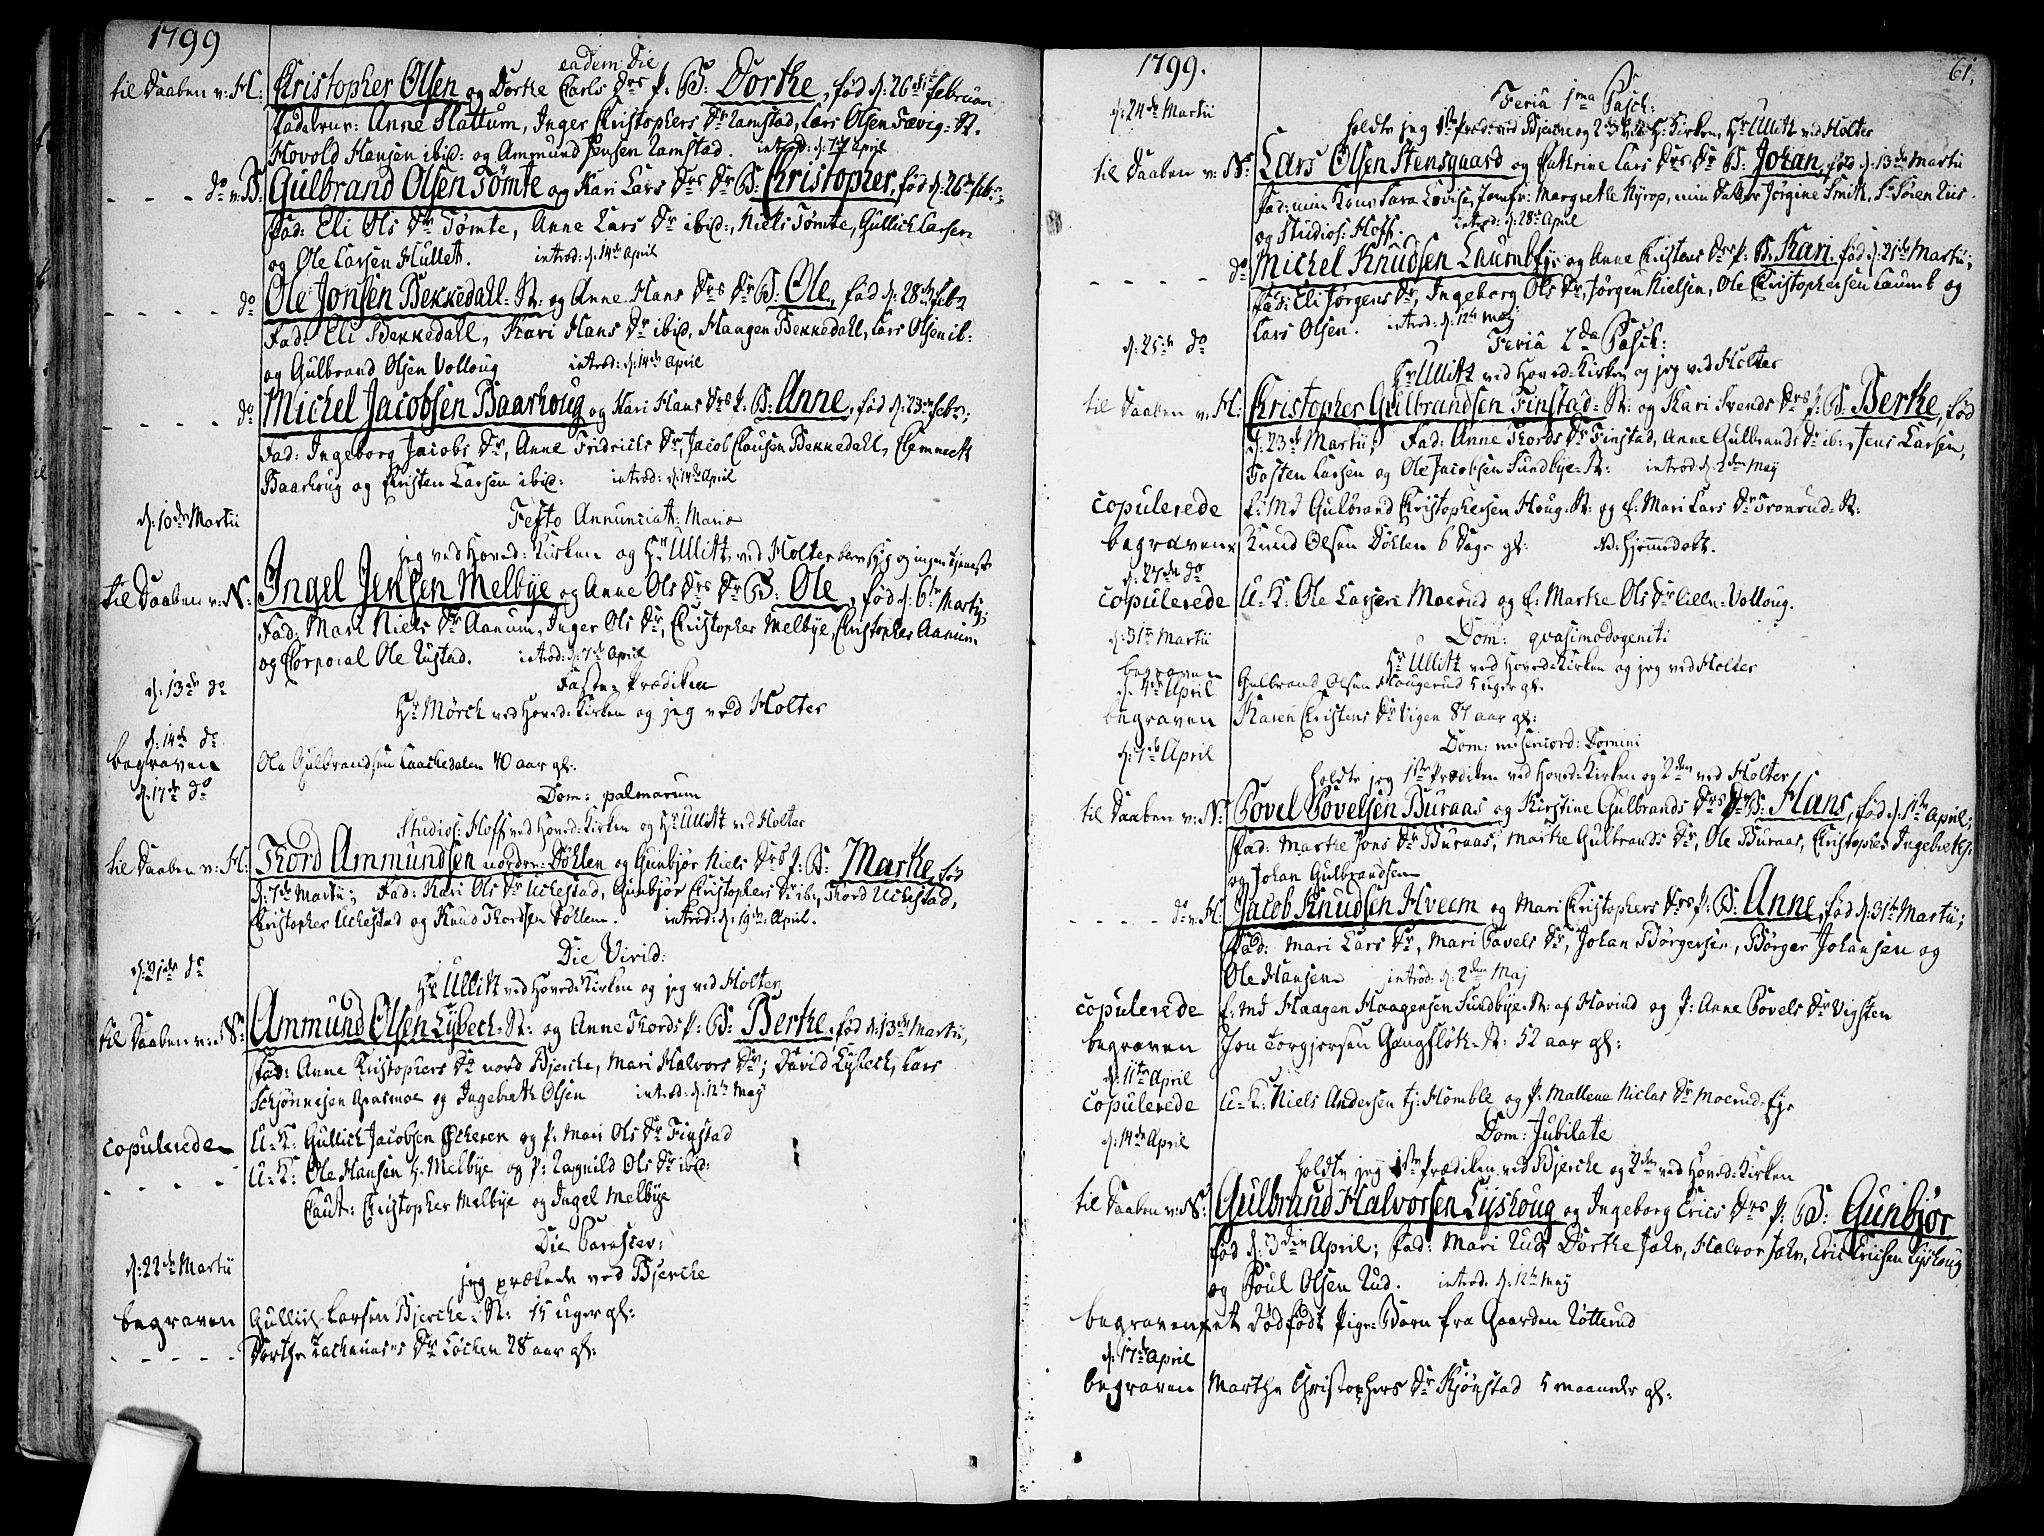 1799
eadem Die
til Daaben v: H: Christopher Olsen og Dorthe Carls Drs P: B: Dorthe, fød d: 26de Februar
Fadderne: Anne Slattum, Inger Christophers Dr Ramstad, Lars Olsen Fævig-St.
Hovold Hansen ibid: og Ammund Jensen Ramstad. introd: d: 14 April
- - - do v: B: Gulbrand Olsen Tømte og Kari Lars Drs Dr B: Christopher, fød d: 26de Febr:
Fad: Eli Ols Dr Tømte, Anne Lars Dr ibid:, Niels Tømte, Gullich Larsen
og Ole Larsen Hullet. introd: d: 14de April
- - - - do Ole Jonsen Bekkedall-St: og Anne Hans Drs Dr B: Ole, fød d: 28de Febr
Fad: Eli Bekkedall, Kari Hans Dr ibid, Haagen Bekkedall, Lars Olsen ib-
og Gulbrand Olsen Volloug introd: d: 14de April
- - - - do Michel Jacobsen Baarhoug og Kari Hans Drs P. B: Anne, fød d: 23de Febr;
Fad: Ingeborg Jacobs Dr, Anne Fridrichs Dr, Jacob Clausen Bekkedall, Clemmeth
Baarhoug og Christen Larsen ibid: introd: d: 14de April
d: 10de Martii Festo Annunciat: Mariæ
jeg ved Hoved-Kirken og Hr Ullitz ved Holter
til Daaben v: N: Ingel Jensen Melbye og Anne Ols Drs Dr B: Ole, fød d: 6te Martii;
Fad: Mari Niels Dr Aanum, Inger Ols Dr, Christopher Melbye, Christopher Aanum
og Corporal Ole Rustad. introd: d: 7de April
d: 13de do Faste-Prædiken
Hr Mørch ved Hoved-Kirken og jeg ved Holter
d: 14de do
begraven Ole Gulbrandsen Raachedalen 40 aar gl:
d: 17de do Dom: palmarum
Studios: Hoff ved Hoved-Kirken og Hr Ullitz ved Holter
til Daaben v: H: Thord Ammundsen norder-Døhlen og Gunbjør Niels Drs P: B: Marthe, fød
d: 7de Martii; Fad: Kari Ols Dr Uchestad, Gunbjør Christophers Dr ib:, Thord Uchestad,
Christopher Uchestad og Knud Thordsen Døhlen. introd: d: 19de April.
d: 21de do Die Virid:
Hr Ullitz ved Hoved-Kirken og jeg ved Holter
til Daaben v: N: Ammund Olsen Lybech-St: og Anne Thords P: B: Berthe, fød d: 13de Martii,
Fad: Anne Christophers Dr nord Bjerche, Mari Halvors Dr; David Lybech, Lars
Schjønnesen og Ingebreth Olsen introd: d: 12te Maj
copulerede U-K: Gullich Jacobsen Ocheren og P: Mari Ols Dr Finstad
- - - - U-K: Ole Hansen h. Melbye og P: Ragnild Ols Dr ibid:
Caut: Christopher Melbye og Ingel Melbye
Die Parascev:
d: 22de Martii jeg prækede ved Bjerche
begraven Gullich Larsen Bjerche-St: 15 uger gl:
- - - - - Dorthe Zachariæsens Dr Løchen 28 aar gl:
1799. 61.
d: 24de Martii Feria 1ma Pasch:
holdte jeg 1ste Præd: ved Bjerche og 2den ved H: Kirken, Hr Ullitz ved Holter
til Daaben v: N: Lars Olsen Stensgaard og Cathrine Lars Drs Dr B: Johan, fød d: 13de Martii
Fad: min Kone Sara Lovise, Jomfr: Margrethe Kyrop, min Datter Jørgine Smith, Sr Søren Riis
og Studios: Hoff. introd: d: 28de April
- - - - do Michel Knudsen Laumbfyr og Anne Christens Drs P: B: Kari fød d: 21de Martii;
Fad: Eli Jørgens Dr, Ingeborg Ols Dr, Jørgen Nielsen, Ole Christophersen Laumb og
Lars Olsen. introd: d: 12te Maj
d: 25de do Feria 2da Pasch:
Hr Ullitz ved Hoved-Kirken og jeg ved Holter
til Daaben v: H: Christopher Gulbrandsen Finstad-St: og Kari Svends Drs P: B: Berthe, fød
d: 23de Martii; Fad: Anne Thords Dr Finstad, Anne Gulbrands Dr ib:, Jens Larsen,
Tosten Larsen og Ole Jacobsen Sundbye-St: introd: d: 2den Maj
copulerede E: Md Gulbrand Christophersen Houg-St: og E: Mari Lars Dr Tronrud-St:
begraven Knud Olsen Døhlen 6 Dage gl: NB: hjemmedøbt.
d: 27de do
copulerede U-K: Ole Larsen Moerud og E: Marthe Ols Dr lille-Volloug.
d: 31te Martii Dom: qvasimodogeniti
Hr Ullitz ved Hoved-Kirken og jeg ved Holter
begraven Gulbrand Olsen Hougerud 5 uger gl:
d: 4de April
begraven Karen Christens Dr Vigen 87 aar gl:
d: 7de April Dom: misericord: Domini
holdte jeg 1ste Prædiken ved Hoved-Kirken og 2den ved Holter
til Daaben v: N: Povel Povelsen Buraas og Kirstine Gulbrands Drs Dr B: Hans, fød d: 1ste April;
Fad: Marthe Jons Dr Buraas, Marthe Gulbrands Dr, Ole Buraas, Christopher Ingebretsr
og Johan Gulbrandsen
- - - - do v: H: Jacob Knudsen Hveem og Mari Christophers Drs P: B: Anne, fød d: 31te Martii;
Fad: Mari Lars Dr, Mari Povels Dr, Johan Børgersen, Børger Johansen og
Ole Hansen introd: d: 2den Maj
copulerede E: Md Haagen Haagensen Sundbye-St: af Hovind og P: Anne Povels Dr Vigsten
begraven Jon Torgjersen Gangfløt-St: 52 aar gl:
d: 11te April
copulerede U-K: Niels Andersen tj: Homble og P: Mallene Niclas Dr Moerud-Eje
d: 14de April Dom: Jubilate
holdte jeg 1ste Prædiken ved Bjerche og 2den ved Hoved-Kirken
til Daaben v: N: Gulbrand Halvorsen Lyshoug og Ingeborg Erics Drs P: B: Gunbjør
fød d: 3die April; Fad: Mari Rud, Dorthe Jahr, Halvor Jahr, Eric Ericsen Lyshoug
og Poul Olsen Rud. introd: d: 12te Maj
begravet et Dødfødt Pige-Barn fra Gaarden Rotterud
d: 17de April
begraven Marthe Christophers Dr Kjønstad 5 maaneder gl: